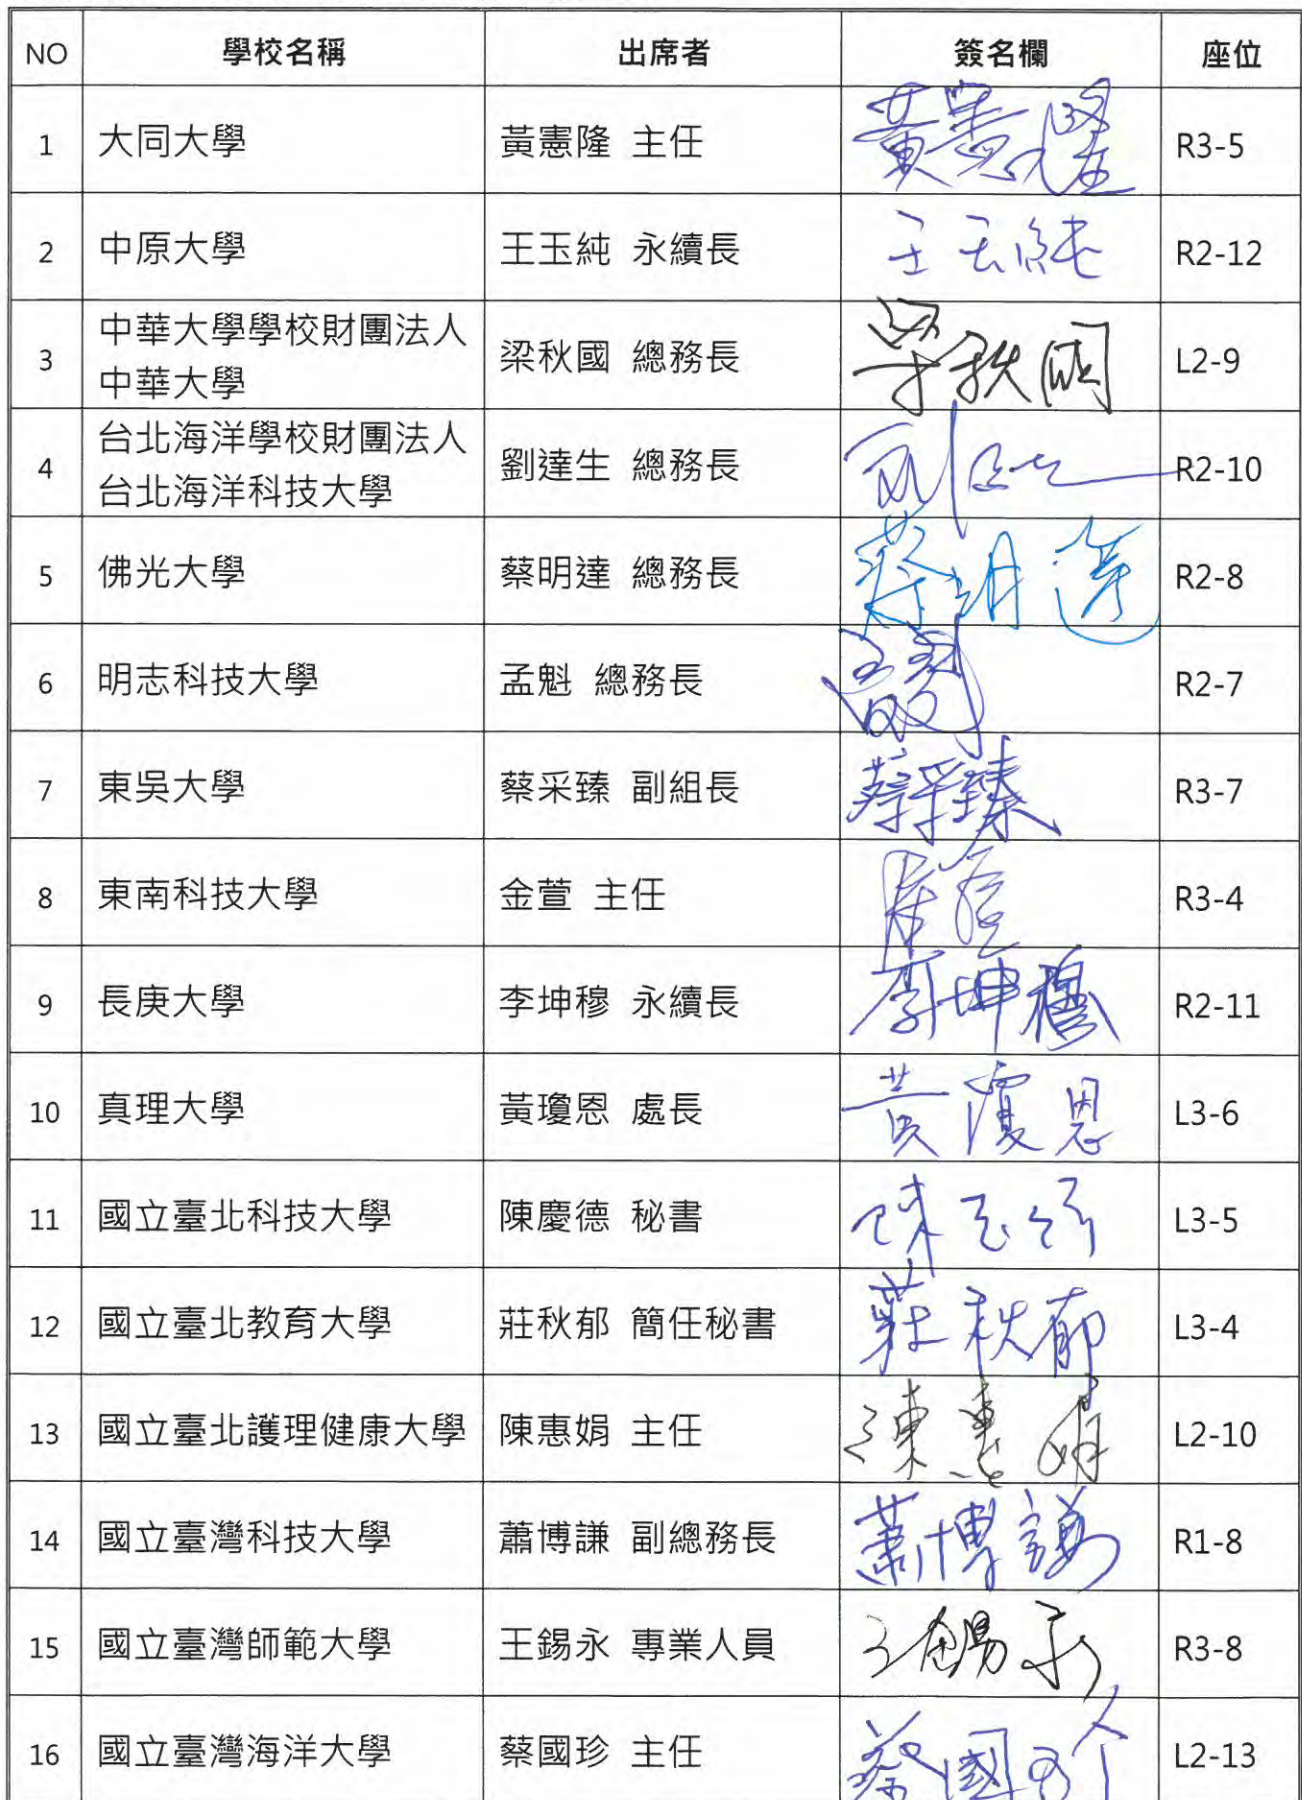 NO 學校名稱 出席者 簽名欄 座位
1 大同大學 黃憲隆 主任 黃憲隆 R3-5
2 中原大學 王玉純 永續長 王玉純 R2-12
中華大學學校財團法人
3 梁秋國 總務長 梁秋國 L2-9
中華大學
台北海洋學校財團法人
4 劉達生 總務長 R2-10
台北海洋科技大學
5 佛光大學 蔡明達 總務長 蔡明達 R2-8
6 明志科技大學 孟魁 總務長 R2-7
7 東吳大學 蔡采臻 副組長 蔡采臻 R3-7
8 東南科技大學 金萱 主任 R3-4
9 長庚大學 李坤穆 永續長 李坤穆 R2-11
10 真理大學 黃瓊恩 處長 黃瓊恩 L3-6
11 國立臺北科技大學 陳慶德 秘書 L3-5
12 國立臺北教育大學 莊秋郁 簡任秘書 莊秋郁 L3-4
13 國立臺北護理健康大學 陳惠娟 主任 陳惠娟 L2-10
14 國立臺灣科技大學 蕭博謙 副總務長 蕭博謙 R1-8
15 國立臺灣師範大學 王錫永 專業人員 王錫永 R3-8
16 國立臺灣海洋大學 蔡國珍 主任 蔡國珍 L2-13